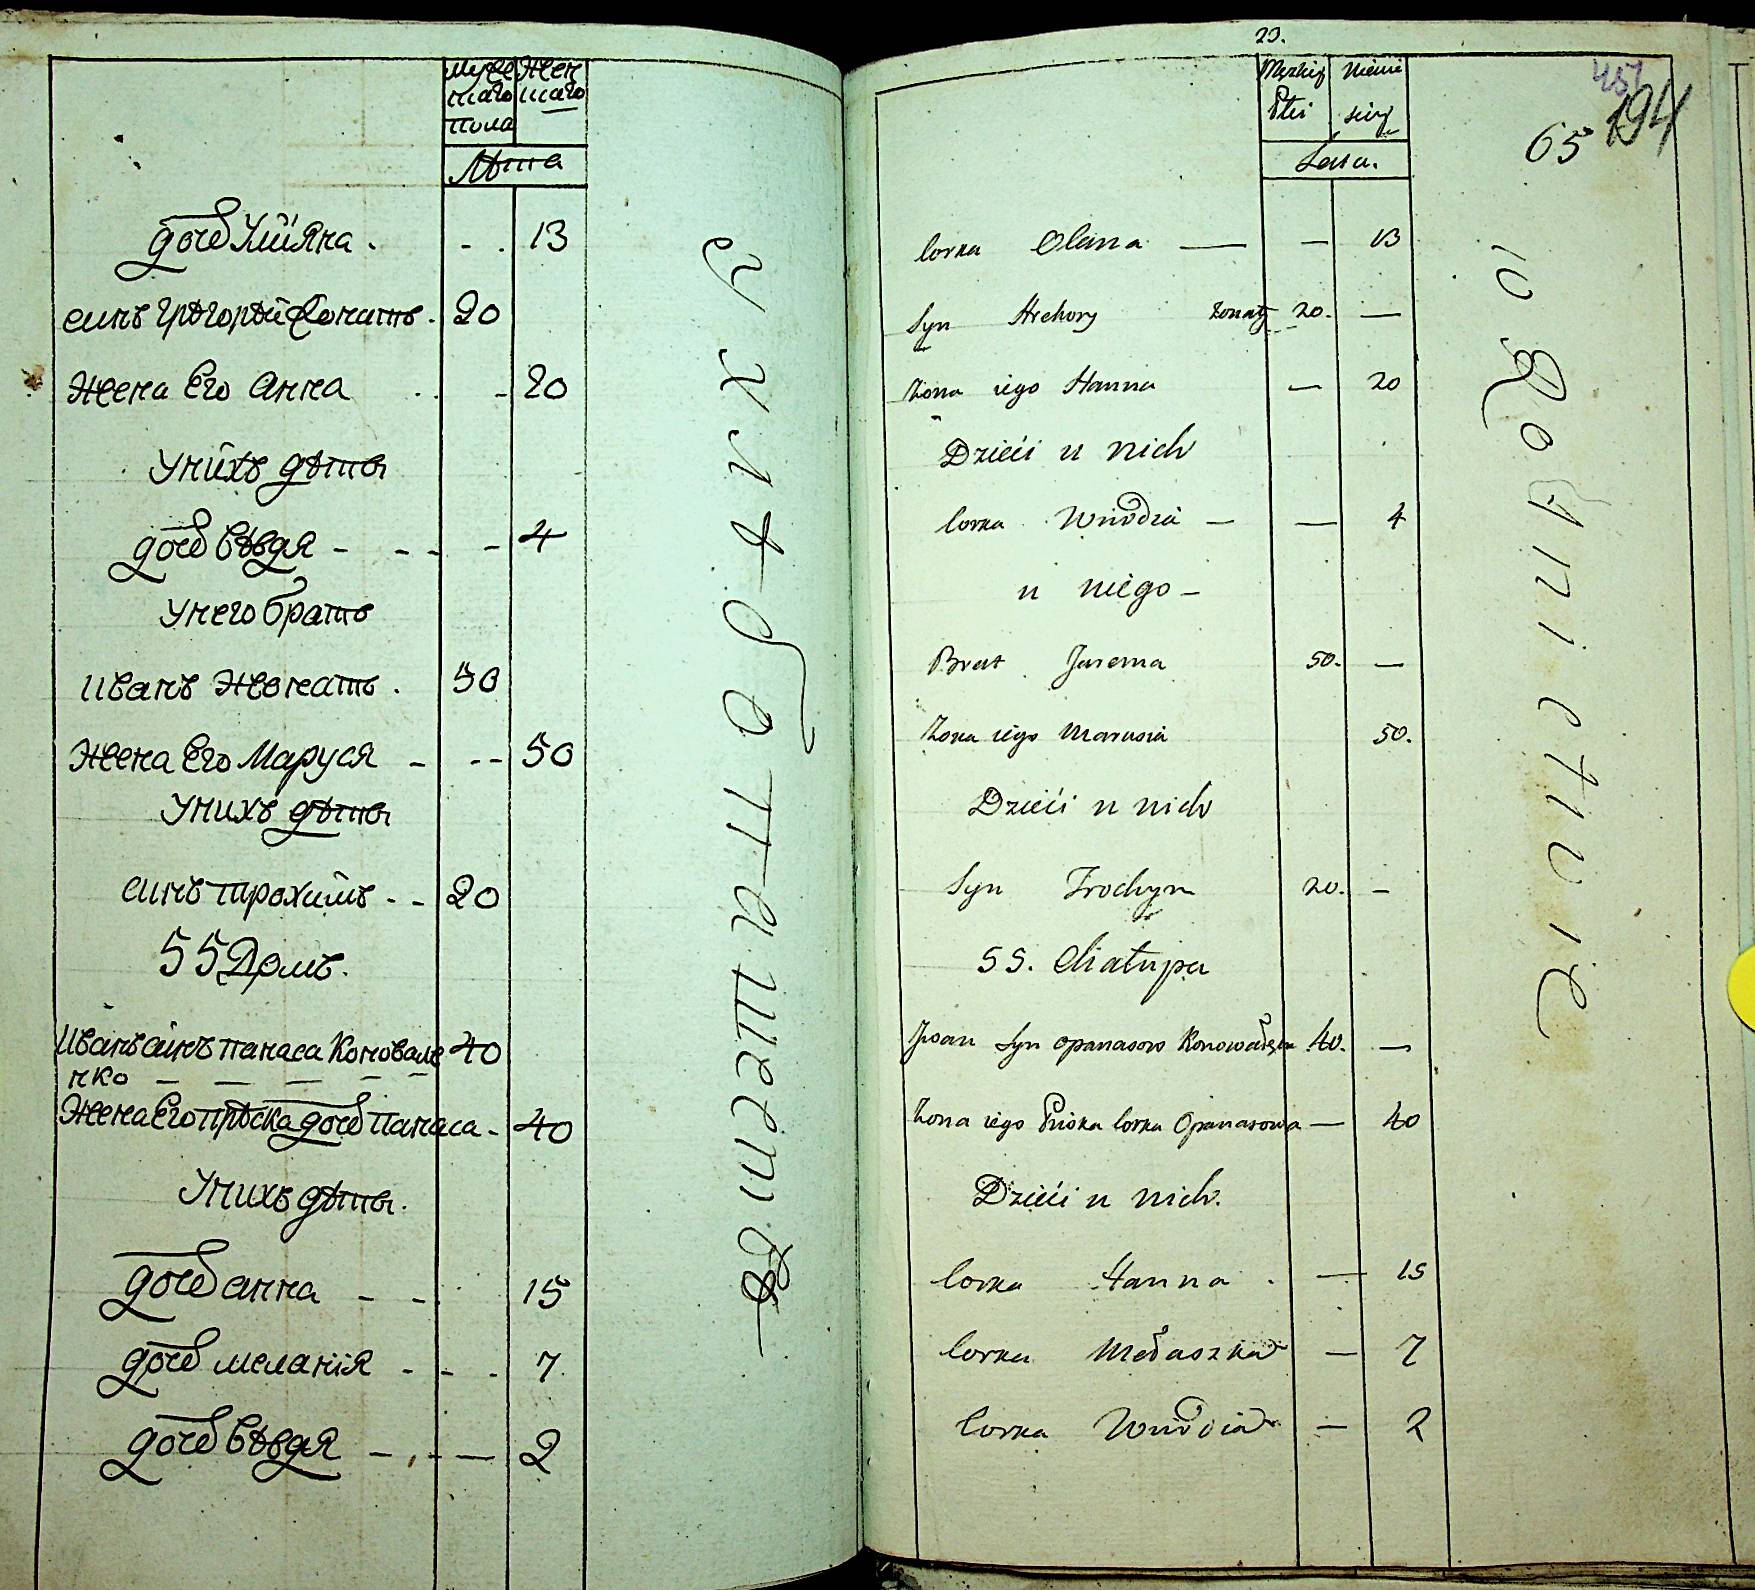 Муже
скаго
пола
Жен
скаго
Лѣта
дочь Улияна . - . 13
синъ Григорѣй Женатъ . 20
Жена Его Анна . . - 20
У нихъ дѣти
дочь Евдя - - - - 4
У него братъ
Иванъ Женатъ . 50
Жена Его Маруся - - - 50
У нихъ дѣти
синъ трохимъ - - 20
55 Домъ.
Иванъ синъ панаса Коновале 40
нко — — — — —
Жена Его прѣска дочь панаса - 40
У нихъ дѣти.
дочь анна - - 15
дочь меланія - - - 7
дочь Евдя - - — 2
у хлѣбопашества
23.
Męzkiey
Płci
Lata.
451
194
65
Corka Olana — — 13
Syn Hrehory żonaty 20. —
Żona iego Hanna — 20
Dzieci u nich
Corka Wiwdzia — — 4
u niego -
Brat Jarema 50. —
Żona iego Marusia 50.
Dzieci u nich
Syn Trochym 20. -
55. Chałupa
Jwan Syn Opanasow 40. —
Żona iego Priska Corka Opanasowa — 40
Dzieci u nich.
Corka Hanna . — 15
Corka Małaszka — 7
Corka Wiwdia — 2
w Rolnictwie